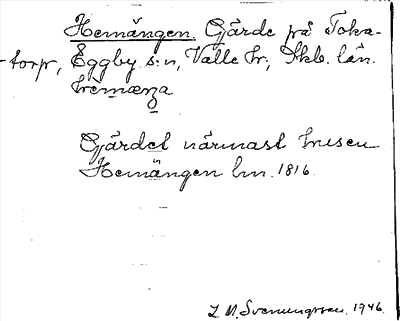 Hemängen. Gärde på Toka-
torp, Eggby s:n, Valle hr, Skb. län.
hèmæŋa
Gärdet närmast husen
Hemängen lm. 1816.
L. M. Svenungsson. 1946.